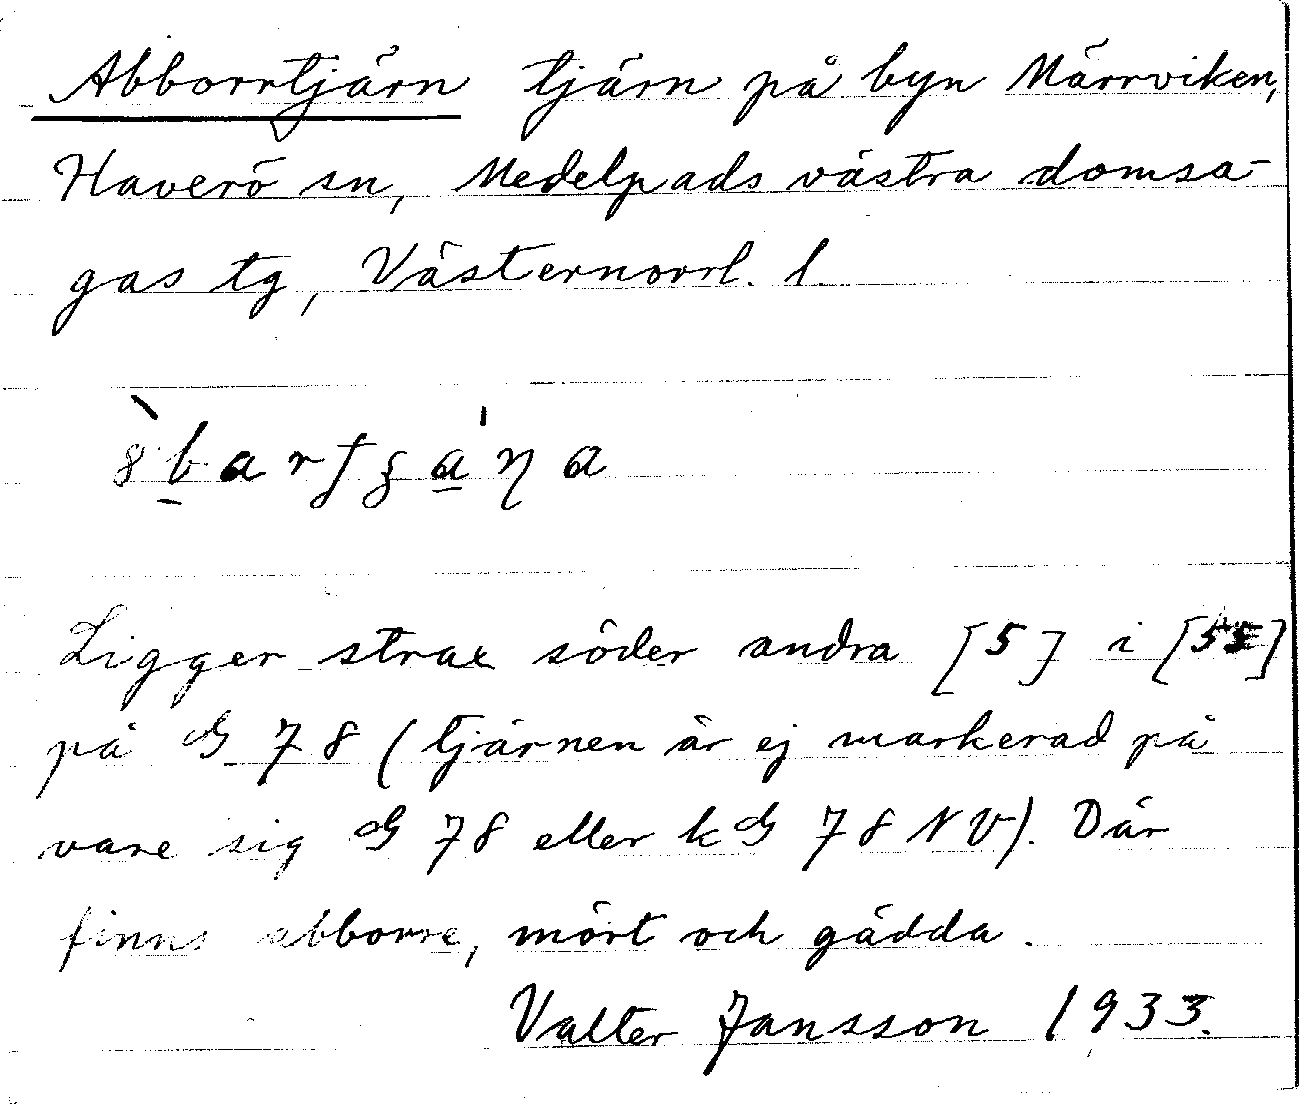 Abborrtjärn tjärn på byn Märrviken,
Haverö sn, Medelpads västra domsa-
gas tg, Västernorrl. l.
Ligger strax söder andra [5] i [55]
på G 78 (tjärnen är ej markerad på
vare sig G 78 eller kG 78 NV). Där
finns abborre, mört och gädda.
Valter Jansson 1933.